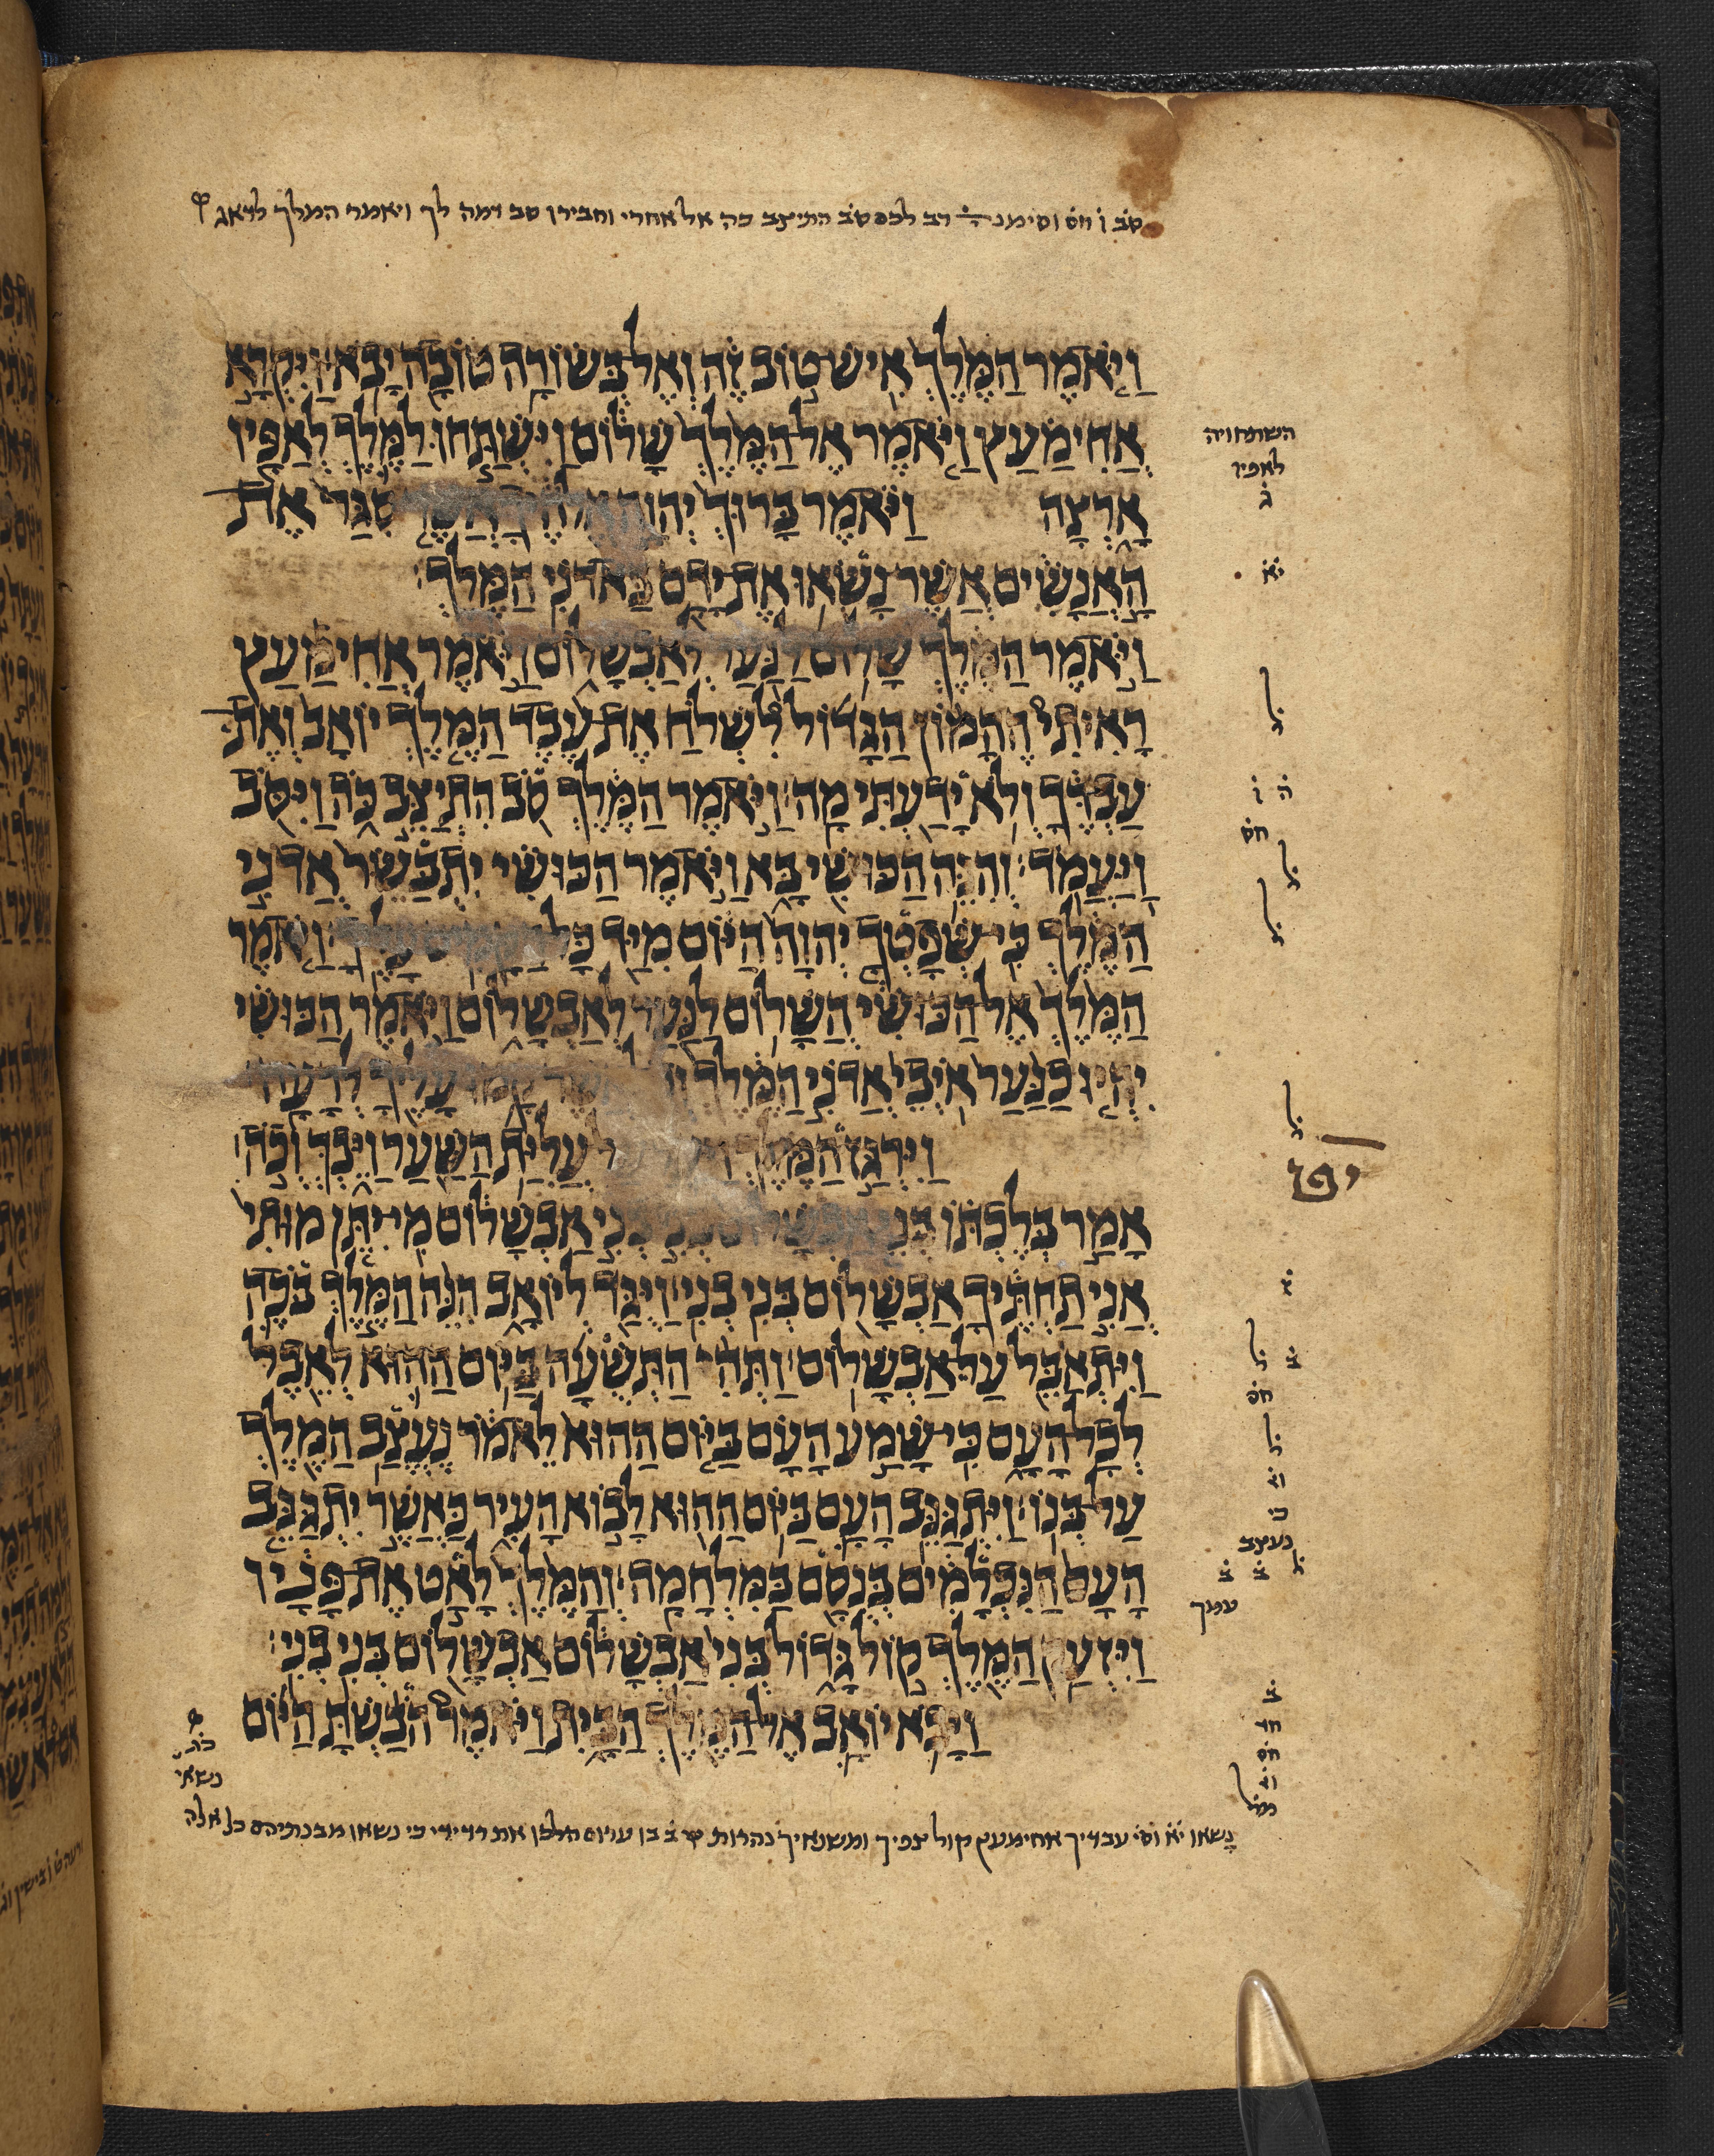 סׄבׄ וׄ חס וסימנהׄ רב לכם סב התיצב כה אל אחרי וחבירו סב דמה לך ויאמר המלך לדאג
וַיֹּאמֶר הַמֶּלֶךְ אִישׁ טוֹב זֶה וְאֶל בְּשׂוֹרָה טוֹבָה יָבֹא וַיִּקְרָא
אֲחִימַעַץ וַיֹּאמֶר אֶל הַמֶּלֶךְ שָׁלוֹם וַיִּשְׁתַּחוּ לַמֶּלֶךְ לְאַפָּיו
השתחויה
לאפיו
גׄ
אָרְצָה וַיֹּאמֶר בָּרוּךְ יְהוָה אֲשֶׁר סִגַּר אֶת
הָאֲנָשִׁים אֲשֶׁר נָשְׂאוּ אֶת יָדָם בַּאדֹנִי הַמֶּלֶךְ׃
יׄאׄ
וַיֹּאמֶר הַמֶּלֶךְ שָׁלוֹם לַנַּעַר לְאַבְשָׁלוֹם וַיֹּאמֶר אֲחִימַעַץ
רָאִיתִי הֶהָמוֹן הַגָּדוֹל לִשְׁלֹחַ אֶת עֶבֶד הַמֶּלֶךְ יוֹאָב וְאֶת
לׄ
עַבְדֶּךָ וְלֹא יָדַעְתִּי מָה׃ וַיֹּאמֶר הַמֶּלֶךְ סֹב הִתְיַצֵּב כֹּה וַיִּסֹּב
הׄ וׄ
חס
וַיַּעֲמֹד׃ וְהִנֵּה הַכּוּשִׁי בָּא וַיֹּאמֶר הַכּוּשִׁי יִתְבַּשֵּׂר אֲדֹנִי
לׄ
לׄ
הַמֶּלֶךְ כִּי שְׁפָטְךָ יְהוָה הַיּוֹם מִיַּד כָּל עָלֶיךָ׃ וַיֹּאמֶר
הַמֶּלֶךְ אֶל הַכּוּשִׁי הֲשָׁלוֹם לַנַּעַר לְאַבְשָׁלוֹם וַיֹּאמֶר הַכּוּשִׁי
יִהְיוּ כַנַּעַר אֹיְבֵי אֲדֹנִי הַמֶּלֶךְ קָמוּ עָלֶיךָ לְרָעָה׃
לׄ
וַיִּרְגַּז הַמֶּלֶךְ עֲלִיַּת הַשַּׁעַר וַיֵּבְךְּ וְכֹה
אָמַר בְּלֶכְתּוֹ בְּנִי אַבְשָׁלוֹם בְּנִי בְנִי אַבְשָׁלוֹם מִי יִתֵּן מוּתִי
אֲנִי תַחְתֶּיךָ אַבְשָׁלוֹם בְּנִי בְנִי׃ וַיֻּגַּד לְיוֹאָב הִנֵּה הַמֶּלֶךְ בֹּכֶה
וַיִּתְאַבֵּל עַל אַבְשָׁלוֹם׃ וַתְּהִי הַתְּשֻׁעָה בַּיּוֹם הַהוּא לְאֵבֶל
בׄ לׄ
חס
לְכָל הָעָם כִּי שָׁמַע הָעָם בַּיּוֹם הַהוּא לֵאמֹר נֶעֱצַב הַמֶּלֶךְ
לׄ
עַל בְּנוֹ׃ וַיִּתְגַּנֵּב הָעָם בַּיּוֹם הַהוּא לָבוֹא הָעִיר כַּאֲשֶׁר יִתְגַּנֵּב
כי
נעצב
הָעָם הַנִּכְלָמִים בְּנֻסָם בַּמִּלְחָמָה׃ וְהַמֶּלֶךְ לָאַט אֶת פָּנָיו
לׄ בׄ בׄ
עמך
וַיִּזְעַק הַמֶּלֶךְ קוֹל גָּדוֹל בְּנִי אַבְשָׁלוֹם אַבְשָׁלוֹם בְּנִי בְנִי׃
וַיָּבֹא יוֹאָב אֶל הַמֶּלֶךְ הַבָּיִת וַיֹּאמֶר הֹבַשְׁתָּ הַיּוֹם
בׄ
חד
חס
נשאי
נָשאו יׄאׄ וסׄיׄ עבדיך אחימעץ קול צפיך ומשנאיך נהרות בן עדום הלכו את דדידי כי נשאו מבנתיהם כל אלה